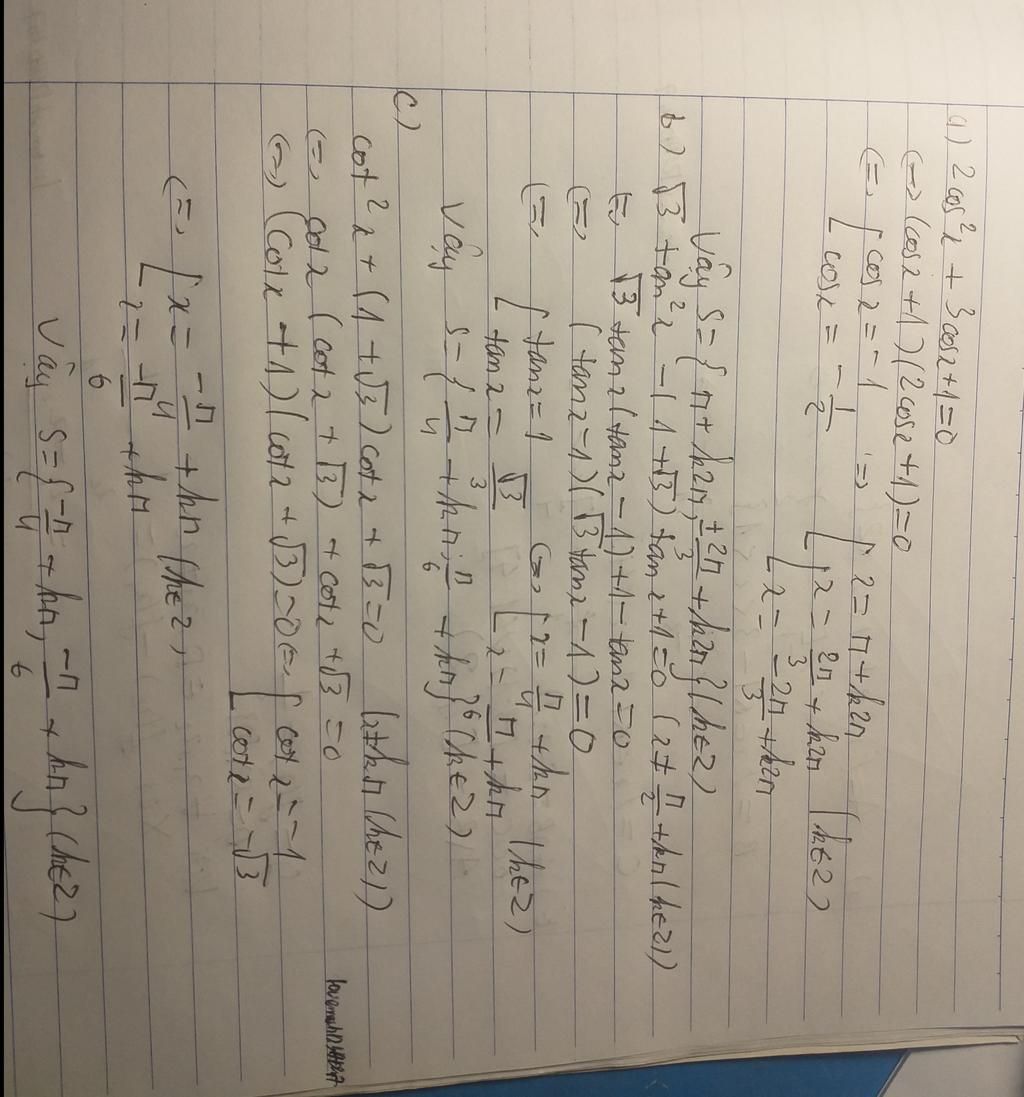 a) 2cos²x + 3cosx+1=0
(=) (cosx+1)(2cosx+1)=0
(=) [ cosx = -1 => [ x = π+k2π
[ cosx = -1/2 [ x = 2π/3 + k2π (k∈Z)
[ x = -2π/3 + k2π
Vậy S={π+k2π; ±2π/3 + k2π} (k∈Z)
b) √3 tan²x - (1+√3)tanx+1=0 (x≠ π/2 + kπ (k∈Z))
(=) √3 tanx(tanx-1)+1-tanx=0
(=) (tanx-1)(√3tanx-1)=0
(=) [ tanx=1 (=) [ x = π/4 + kπ
[ tanx = √3/3 [ x = π/6 + kπ (k∈Z)
Vậy S={π/4 + kπ; π/6 + kπ} (k∈Z)
c)
cot²x + (1+√3)cotx + √3 =0 (x≠kπ (k∈Z))
(=) cotx (cotx + √3) + cotx +√3 =0
(=) (cotx +1)(cotx + √3)=0 (=) [ cotx = -1
[ cotx = -√3
(=) [ x = -π/4 + kπ (k∈Z)
[ x = -π/6 + kπ
Vậy S={-π/4 + kπ, -π/6 + kπ} (k∈Z)